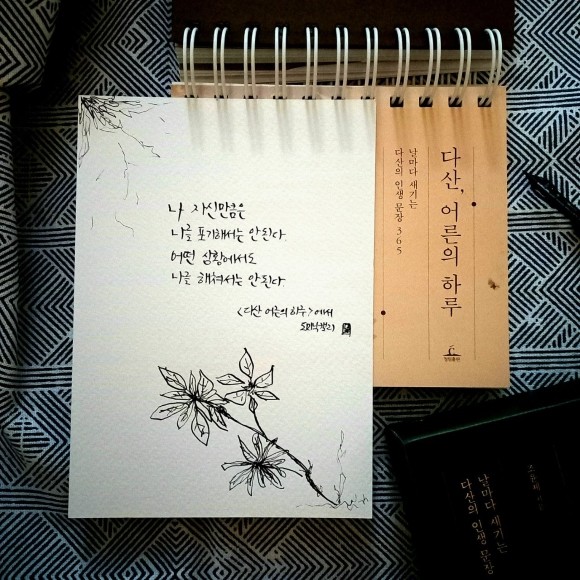 나 자신만큼은
나를 포기해서는 안된다.
어떤 상황에서도
나를 해쳐서는 안된다.
<다산 어른의 하루>에서
다산, 어른의 하루
날마다 새기는
다산의 인생 문장 365
날마다 새기는
다산의 인생 문장